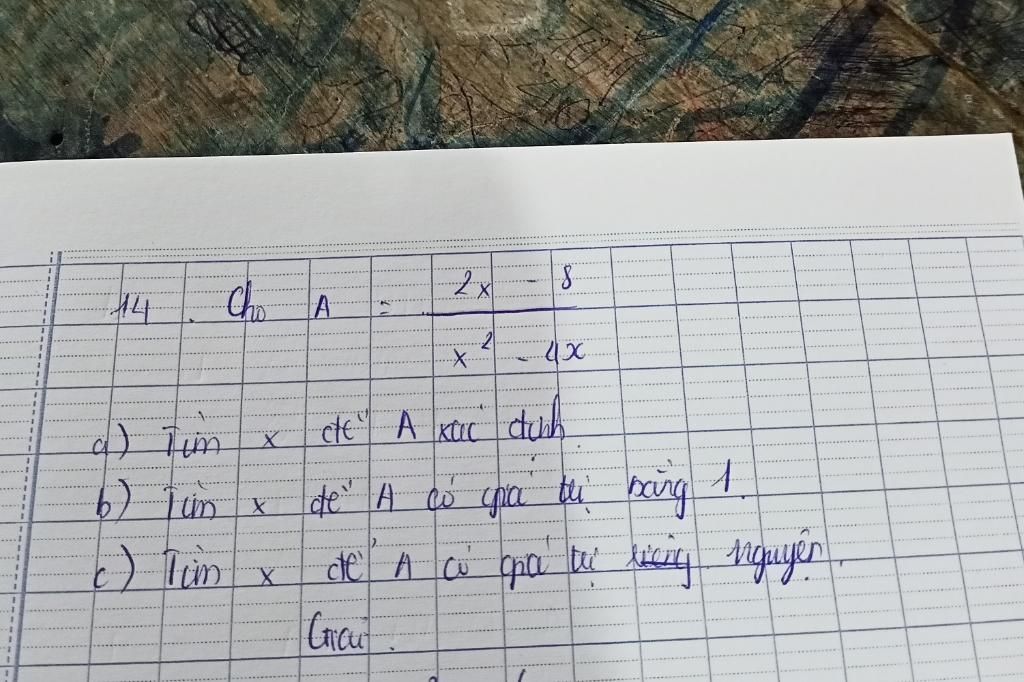 14. Cho A = \frac{2x - 8}{x^2 - 4x}
a) Tìm x để A xác định
b) Tìm x để A có giá trị bằng 1.
c) Tìm x để A có giá trị nguyên.
Giải.